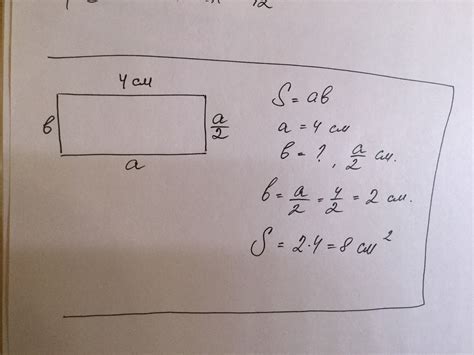 4 см
в
a/2
a
S = ab
a = 4 см
в = ? , a/2 см.
в = a/2 = 4/2 = 2 см.
S = 2·4 = 8 см²